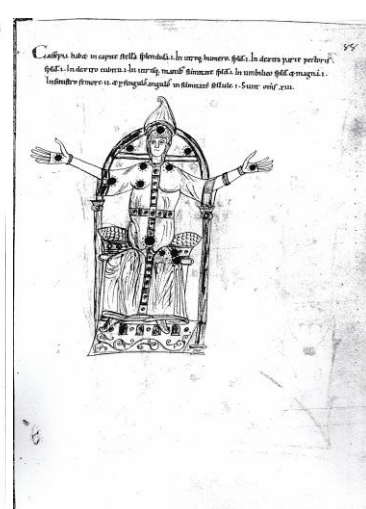 88
Cassepia habet in capite stella splendida .i. In utroq; humero spld .i. In dextra parte pectoris
spld .i. In dextro cubito .i. In utrisq; manib; singulas spld .i. In umbilico spld & magna .i.
In sinistro femore .ii. & p singulos angulos in sellule .i. Sunt oms .xiii.